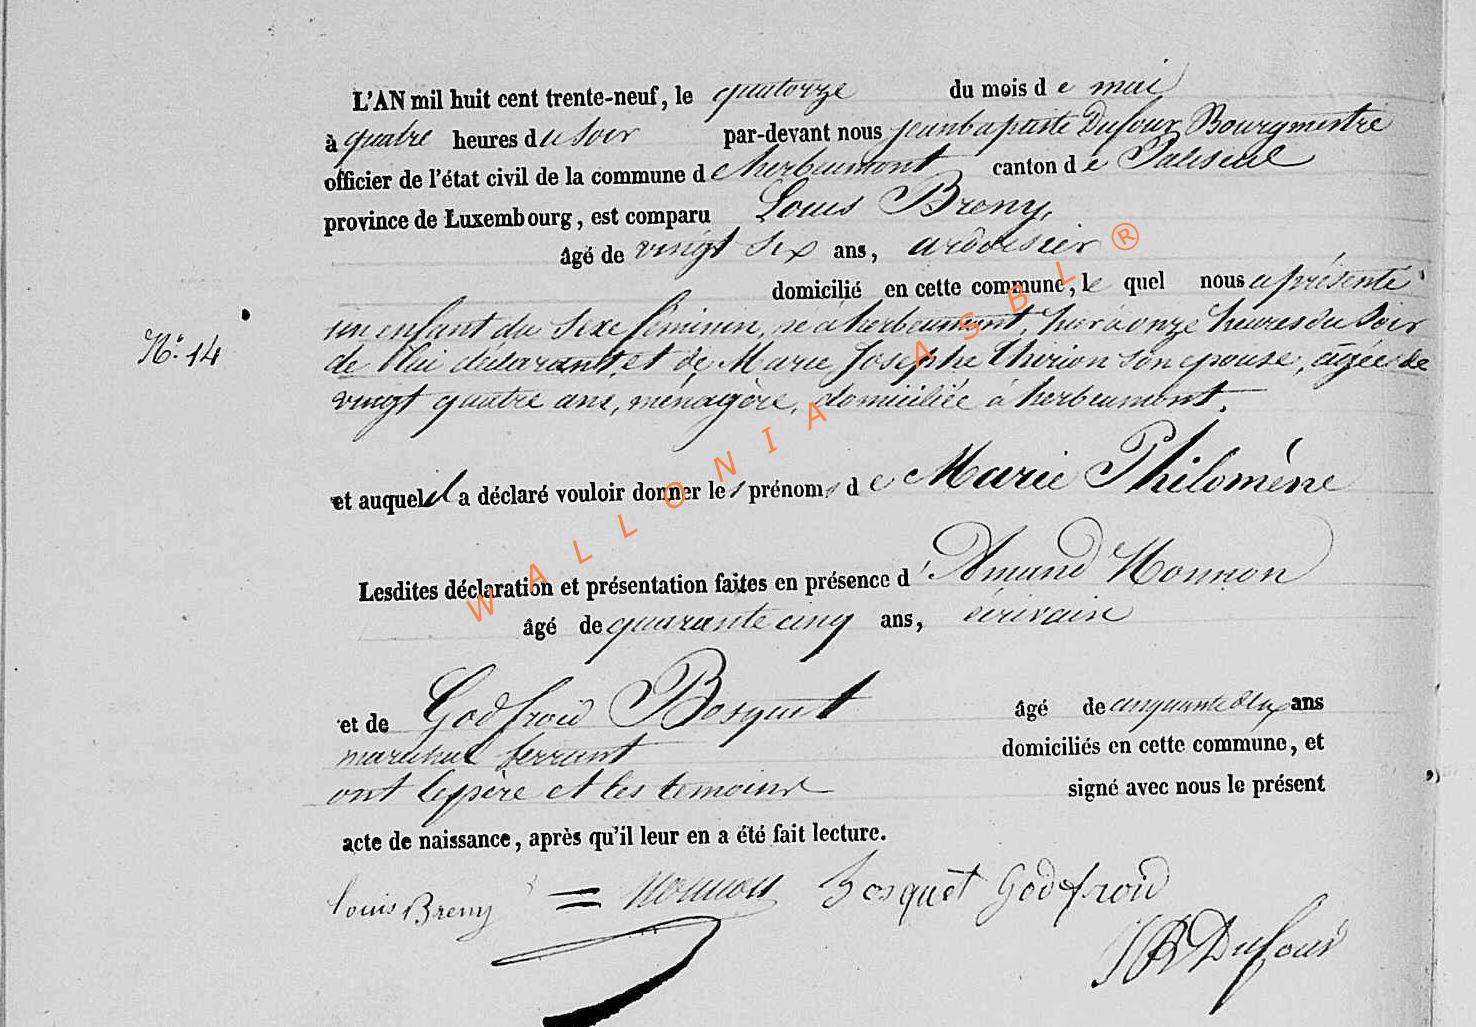 L'AN mil huit cent trente-neuf, le quatorze du mois de mai
à quatre heures du soir par-devant nous jeanbaptiste Dufour Bourgmestre
officier de l'état civil de la commune de herbeumont canton de Paliseul
province de Luxembourg, est comparu Louis Breny,
âgé de vingt six ans, ardoisier
domicilié en cette commune, le quel nous a présenté
un enfant du sexe féminin, né à herbeumont, hier à onze heures du soir
N.º 14
de lui déclarant, et de Marie Josephe Thirion son epouse, agée de
vingt quatre ans, ménagère, domiciliée à herbeumont.
et auquel il a déclaré vouloir donner les prénoms de Marie Philomène
Lesdites déclaration et présentation faites en présence d'Amand Nonnon
âgé de quarante cinq ans, écrivain
et de Godfroid Bosquet âgé de cinquante deux ans
marechal ferrant domiciliés en cette commune, et
ont le père et les temoins signé avec nous le présent
acte de naissance, après qu'il leur en a été fait lecture.
louis Breny = Nonnon Bosquet Godefroid
JB Dufour
WALLONIA ASBL ®